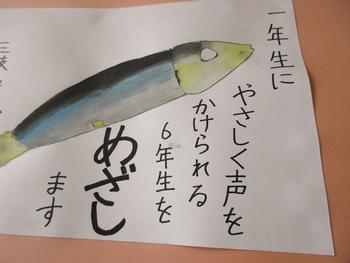 一年生に
やさしく声を
かけられる
6年生を
めざし
ます